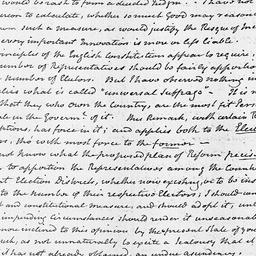 would be rash to form a decided
to calculate, whether so much good may reasona
such a measure, as would justify the Risque of In
every important Innovation is more or less liable.
principles of the English Constitution appear to require,
number of Representatives should be fairly apportio
number of Electors. But I have observed nothing in
what is called "universal Suffrage". It is n
that they who own the Country, are the most fit Pers
in the Governmt. of it. This Remark, with certain
has force in it; and applies both to the Elec
the with most force to the former —
not know what the proposed plan of Reform precis
to apportion the Representatives among the Coun
Election Districts, whether now existing, or to be in
to the number of their respective Electors, I should con
and constitutional measure, and should adopt it, un
impending Circumstances should render it unseasonab
more inclined to this opinion by the present State of your
as not unnaturally to excite a Jealousy that
has not already obtained, an undue ascendency,